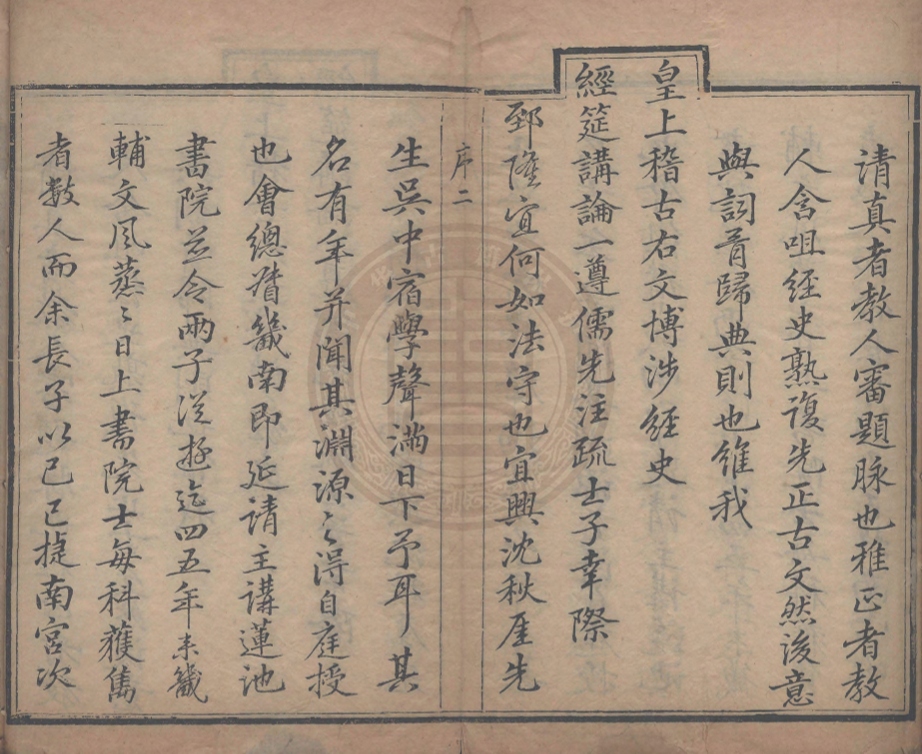 清真者教人審題脉也雅正者教
人含咀經史熟復先正古文然後意
與詞胥歸典則也維我
皇上稽古右文博涉經史
經筵講論一遵儒先注疏士子幸際
郅隆宜何如法守也宜興沈秋厓先
序二
生吳中宿學聲滿日下予耳其
名有年并聞其淵源之得自庭授
也會總督畿南即延請主講蓮池
書院並令兩子從遊迄四五年来畿
輔文風蒸〻日上書院士每科獲雋
者數人而余長子以己巳捷南宮次